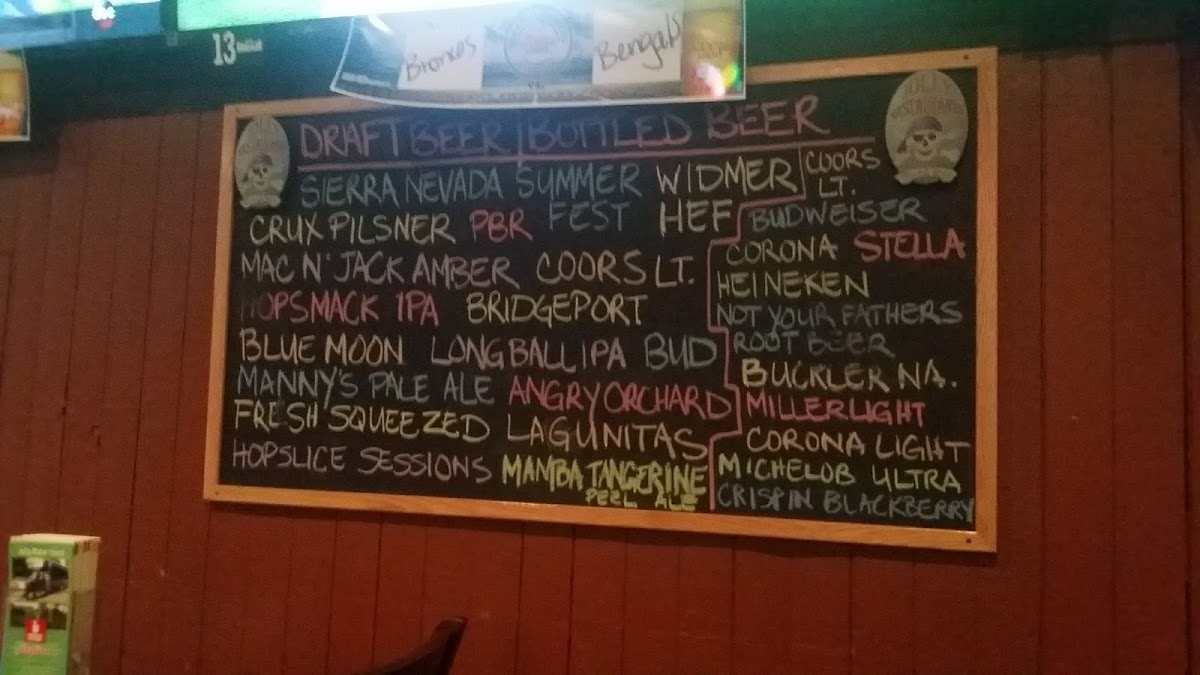 13
Broncos
Bengals
DRAFT BEER
SIERRA NEVADA SUMMER FEST WIDMER HEF
CRUX PILSNER PBR
MAC N' JACK AMBER COORS LT.
HOPSMACK IPA BRIDGEPORT
BLUE MOON LONGBALL IPA BUD
MANNY'S PALE ALE ANGRY ORCHARD
FRESH SQUEEZED LAGUNITAS
HOPSLICE SESSIONS MAMBA TANGERINE
PEEL ALE
BOTTLED BEER
COORS
LT.
BUDWEISER
CORONA STELLA
HEINEKEN
NOT YOUR FATHERS
ROOT BEER
BUCKLER NA.
MILLER LIGHT
CORONA LIGHT
MICHELOB ULTRA
CRISPIN BLACKBERRY